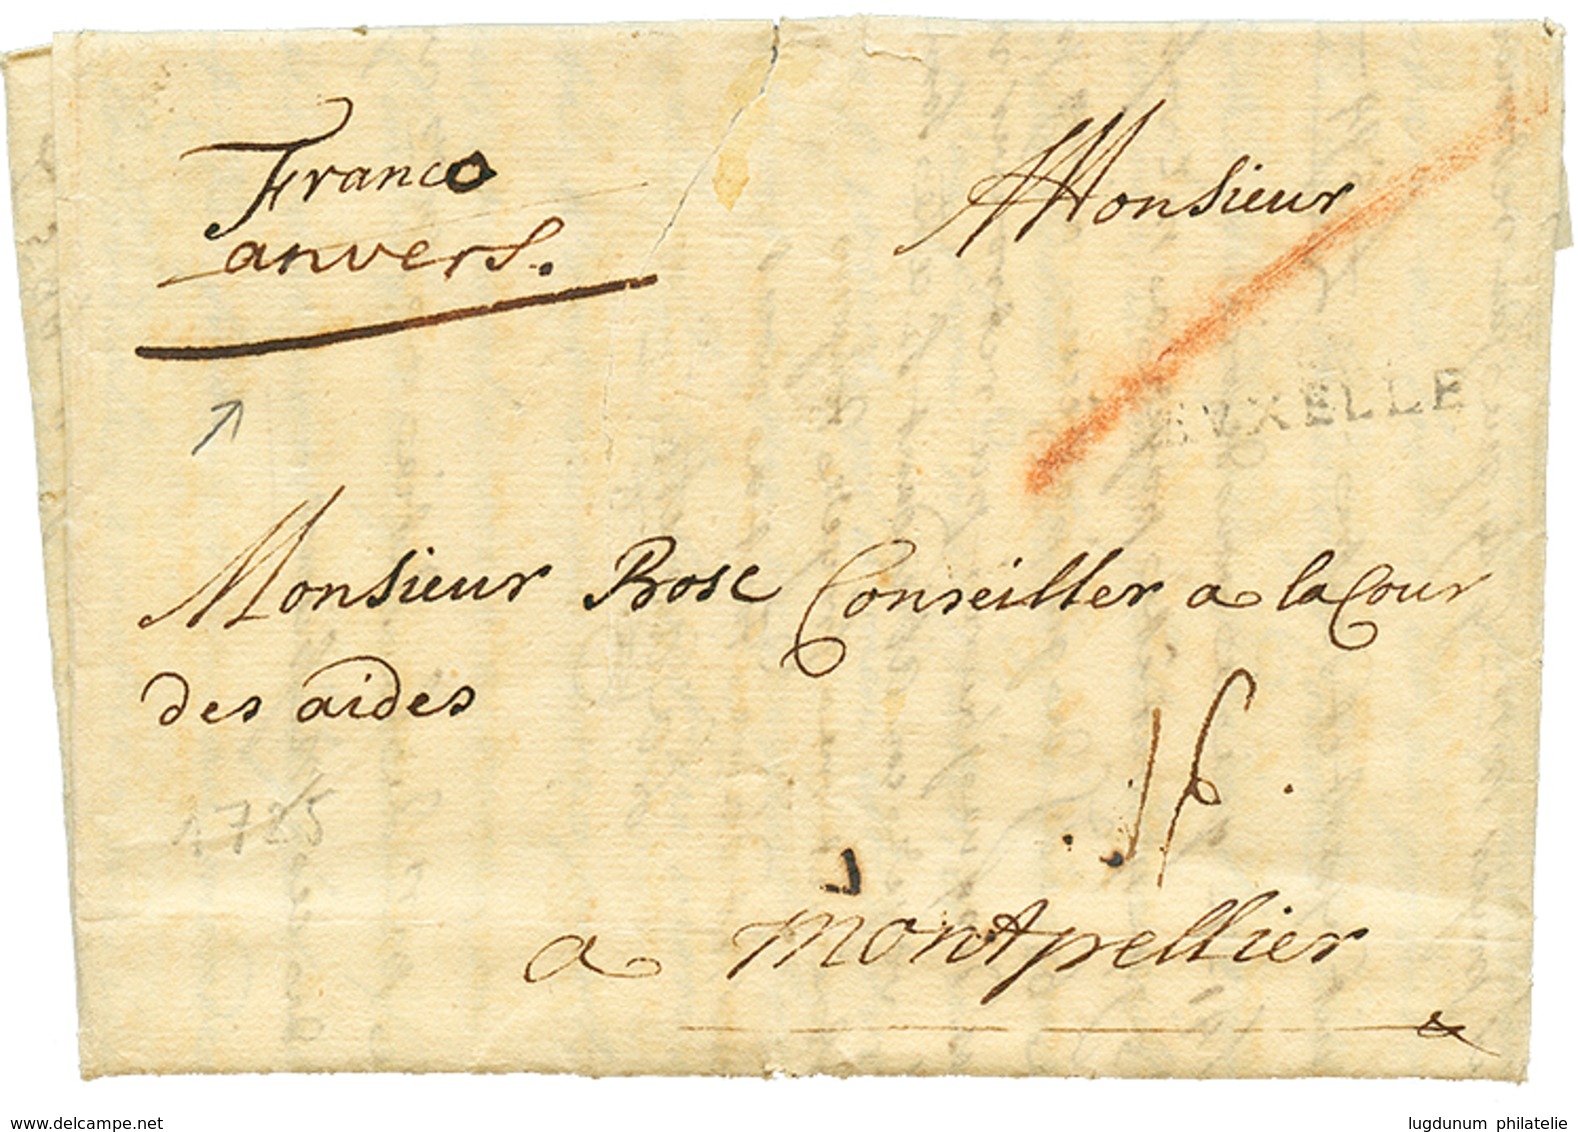 Franco
anvers.
Monsieur
BVXELLE
Monsieur Bosc Conseiller a la Cour
des aides
1785
a Montpellier
www.delcampe.net
lugdunum philatelie